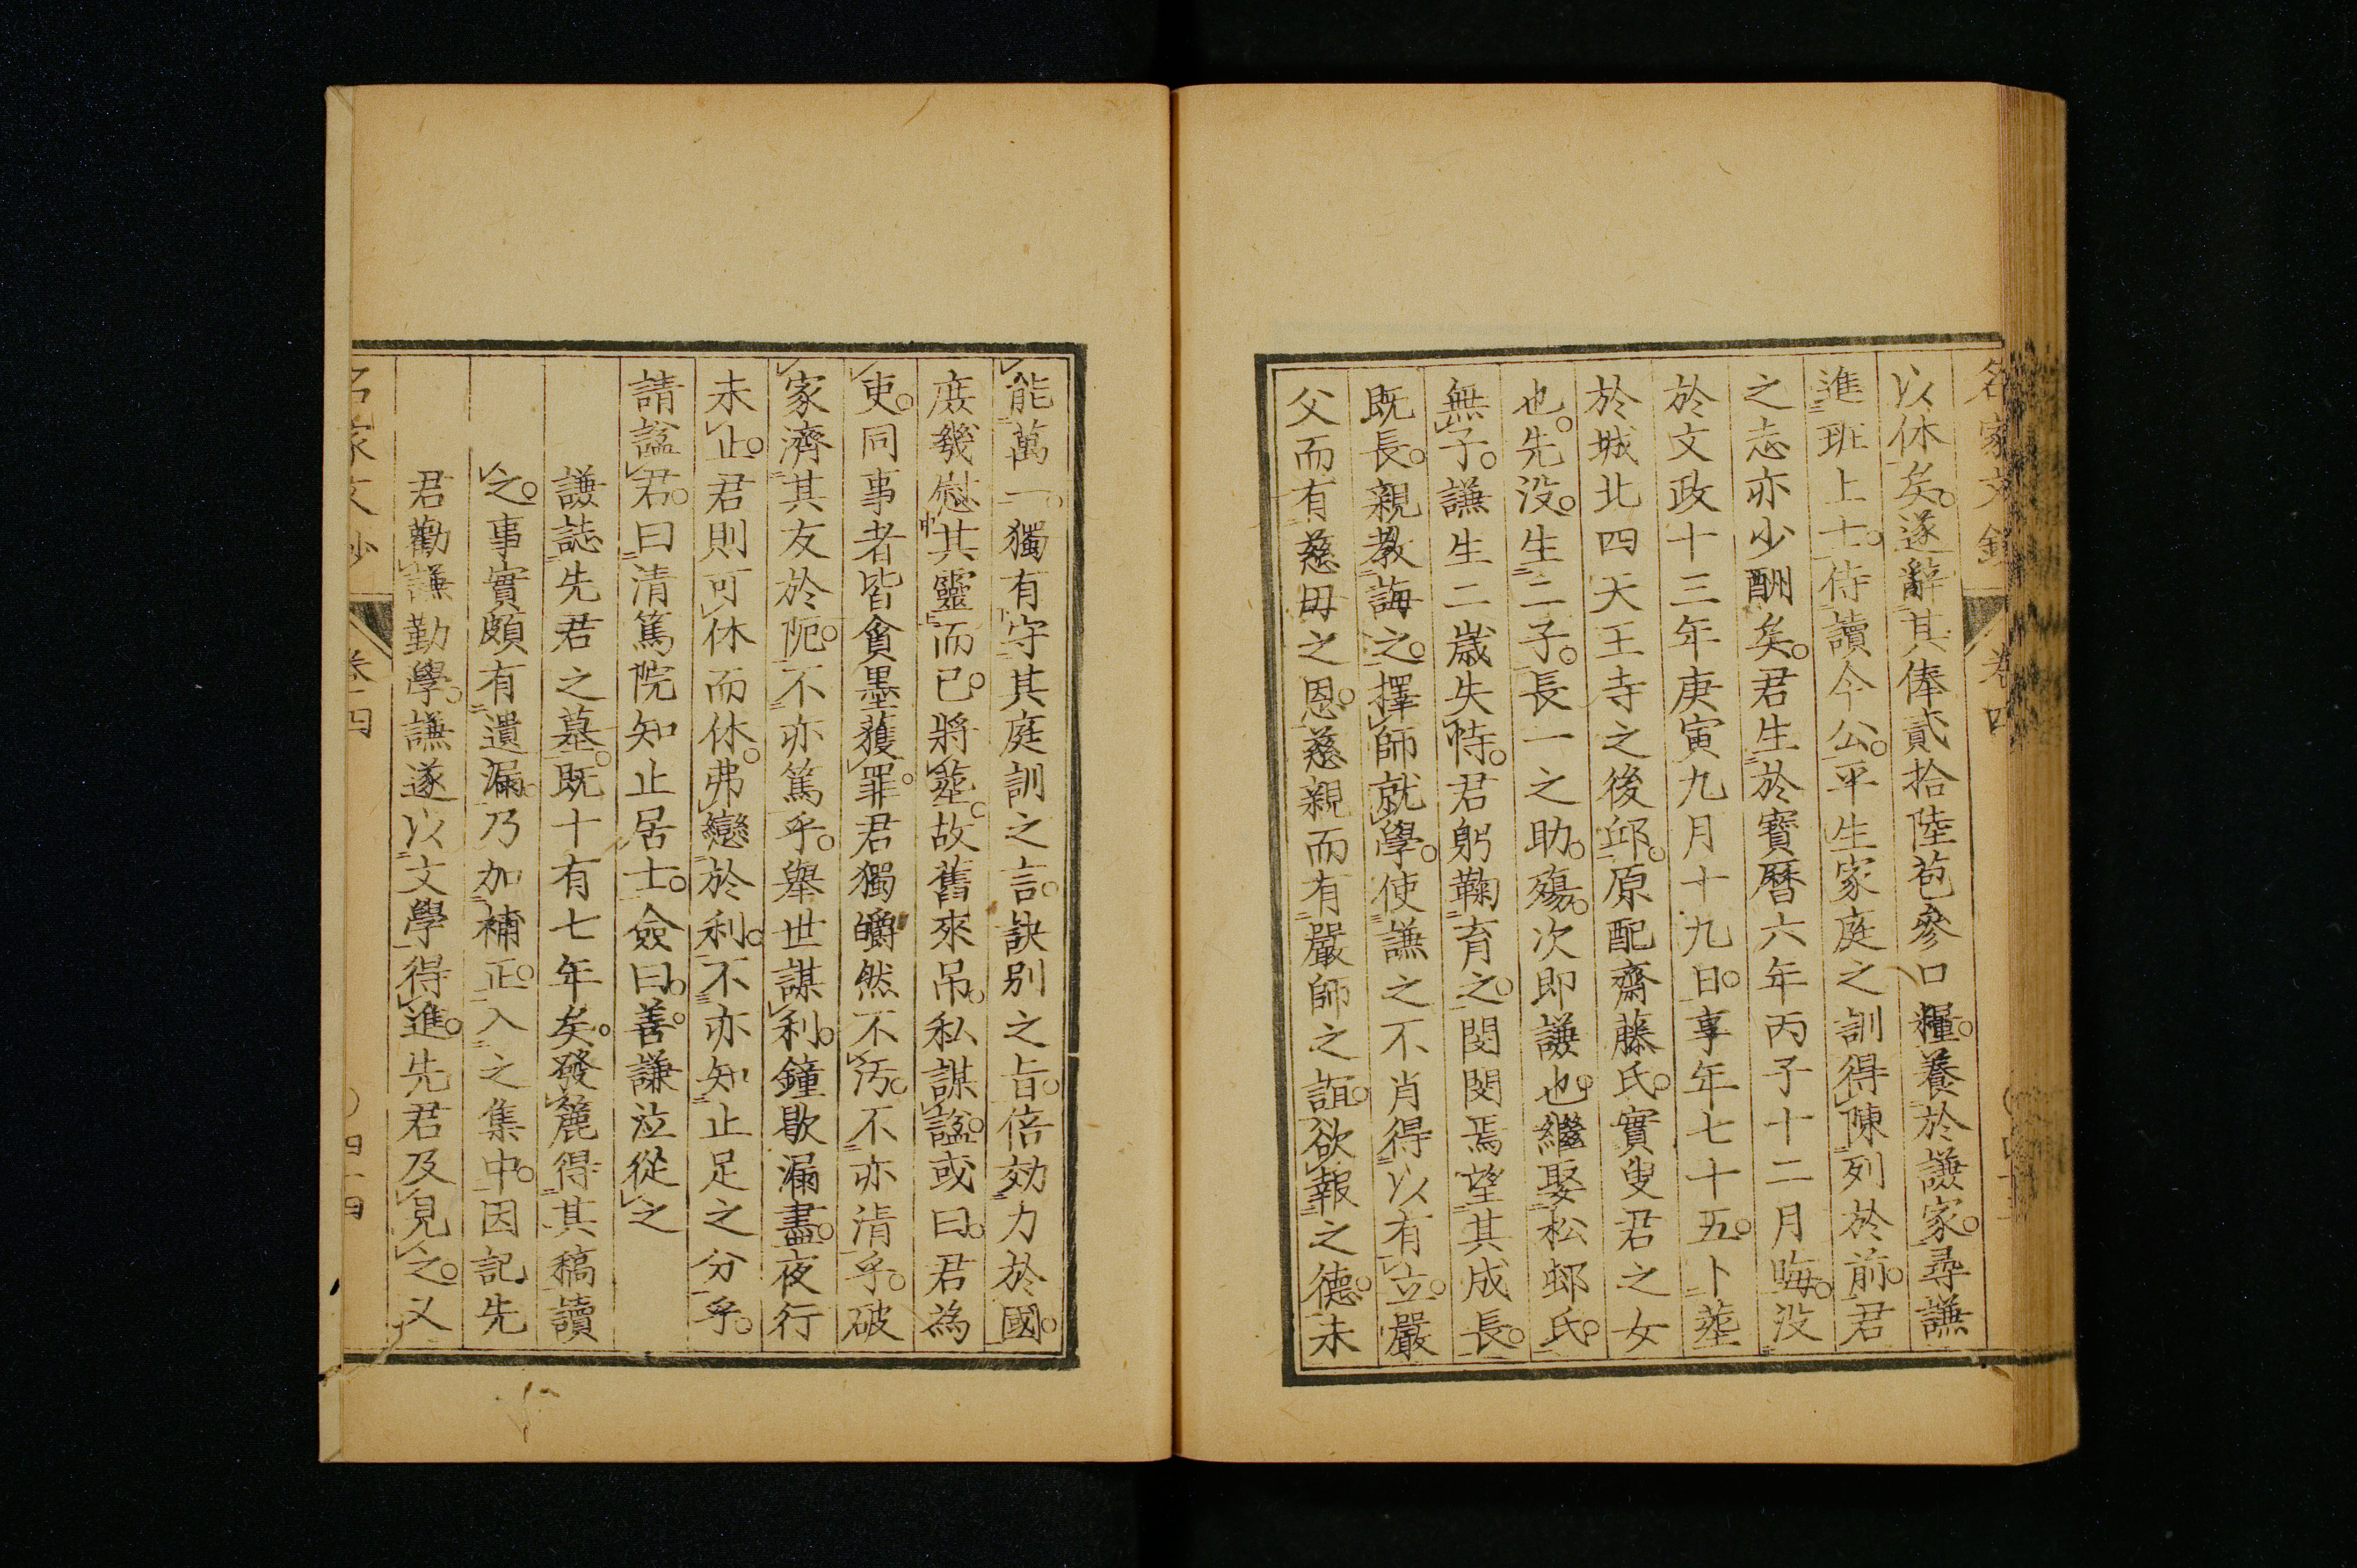 以休矣。遂辭其俸貳拾陸苞參口糧。養於謙家。尋謙
進班上士。侍讀今公。平生家庭之訓得陳列於前。君
之志亦少酬矣。君生於寶曆六年丙子十二月晦。沒
於文政十三年庚寅九月十九日。享年七十五。卜葬
於城北四天王寺之後邱。原配齋藤氏。實叟君之女
也。先沒。生二子。長一之助。殤。次即謙也。繼娶松邨氏。
無子。謙生二歲失恃。君躬鞠育之。閔閔焉望其成長。
既長。親教誨之。擇師就學。使謙之不肖得以有立。嚴
父而有慈毋之恩。慈親而有嚴師之誼。欲報之德。未
能萬一。獨有守其庭訓之言。訣別之旨。倍効力於國。
庶幾慰其靈而已。將葬。故舊來吊。私謀諡。或曰。君為
吏。同事者皆貪墨獲罪。君獨皭然不汚。不亦清乎。破
家濟其友於阨。不亦篤乎。舉世謀利。鐘歇漏盡。夜行
未止。君則可休而休。弗戀於利。不亦知止足之分乎。
請諡君。曰清篤院知止居士。僉曰。善。謙泣從之
謙誌先君之墓。既十有七年矣。發簏得其稿讀
之。事實頗有遺漏。乃加補正。入之集中。因記先
君勸謙勤學。謙遂以文學得進。先君及見之。又
名家文鈔
卷四